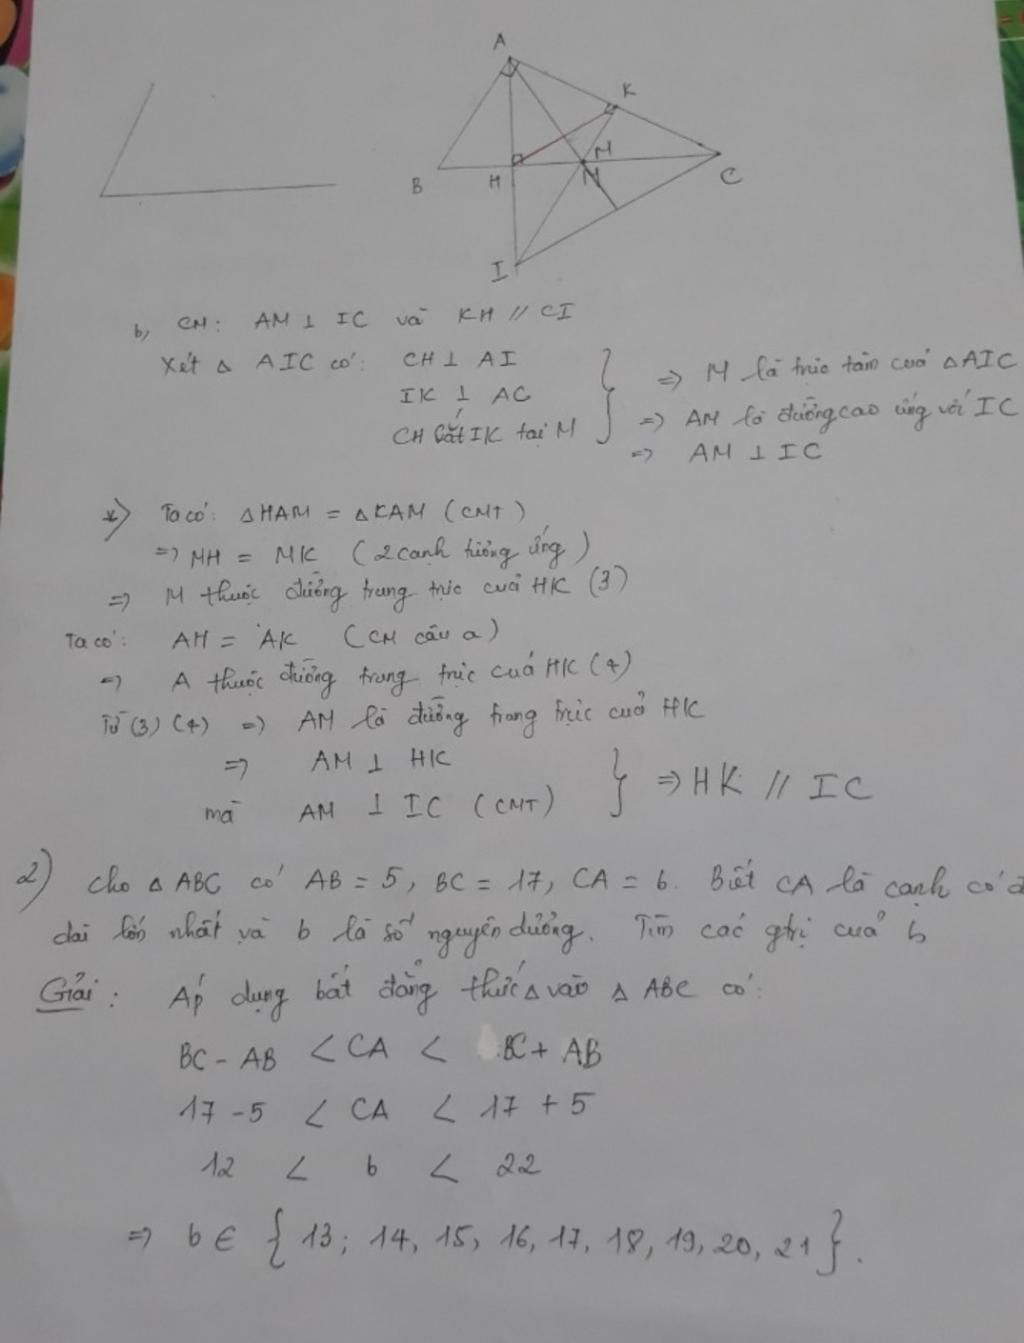 A
K
B
H
M
M
C
I
b, CM: AM ⊥ IC và KH // CI
Xét △ AIC có: CH ⊥ AI
IK ⊥ AC
CH cắt IK tại M
} => M là trực tâm của △AIC
=> AM là đường cao ứng với IC
=> AM ⊥ IC
*) Ta có: △HAM = △KAM (CMT)
=> MH = MK (2 cạnh tương ứng)
=> M thuộc đường trung trực của HK (3)
Ta có: AH = AK (CM câu a)
=> A thuộc đường trung trực của HK (4)
Từ (3) (4) => AM là đường trung trực của HK
=> AM ⊥ HK
mà AM ⊥ IC (CMT) } => HK // IC
2) Cho △ ABC có AB = 5, BC = 17, CA = b. Biết CA là cạnh có đ
dài lớn nhất và b là số nguyên dương. Tìm các gtrị của b
Giải: Áp dụng bất đẳng thức △ vào △ ABC có:
BC - AB < CA < BC + AB
17 - 5 < CA < 17 + 5
12 < b < 22
=> b ∈ { 13; 14, 15, 16, 17, 18, 19, 20, 21 }.